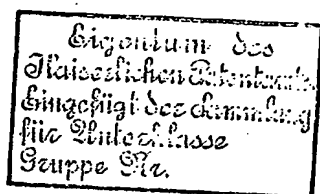 Eigentum des
Kaiserlichen Patentamts.
Eingefügt der Sammlung
für Unterklasse
Gruppe Nr.